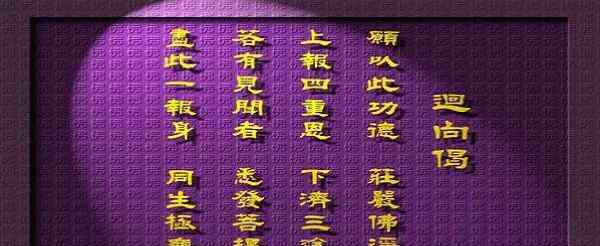 迴向偈
願以此功德 莊嚴佛
上報四重恩 下濟三
若有見聞者 悉發菩
盡此一報身 同生極